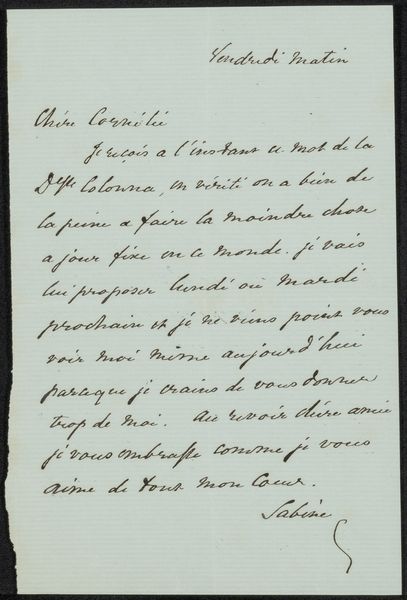 Vendredi Matin
Chère Cornélie
Je reçois a l'instant ce mot de la
Dsse Colonna, en vérité on a bien de
la peine a faire la moindre chose
a jour fixe en ce monde. je vais
lui proposer lundi ou mardi
prochain et je ne viens point vous
voir moi même aujourd'hui
parceque je crains de vous donner
trop de moi. Au revoir chère amie
je vous embrasse comme je vous
aime de tout mon Coeur.
Sabine